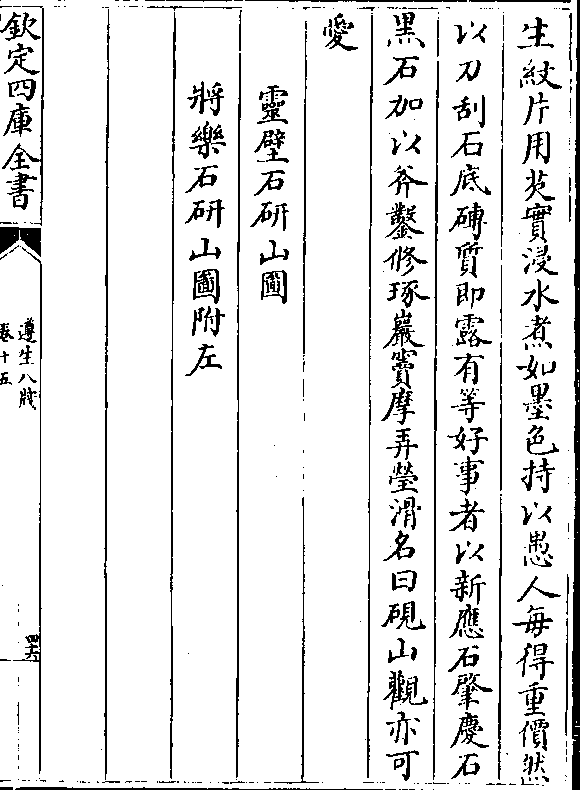 生紋片用芡實浸水煮如墨色持以愚人每得重價然
以刀刮石底磚質即露有等好事者以新應石肇慶石
黑石加以斧鑿修琢巖竇摩弄瑩滑名曰硯山觀亦可
愛
靈壁石研山圖
將樂石研山圖附左
欽定四庫全書
遵生八牋
卷十五
四六